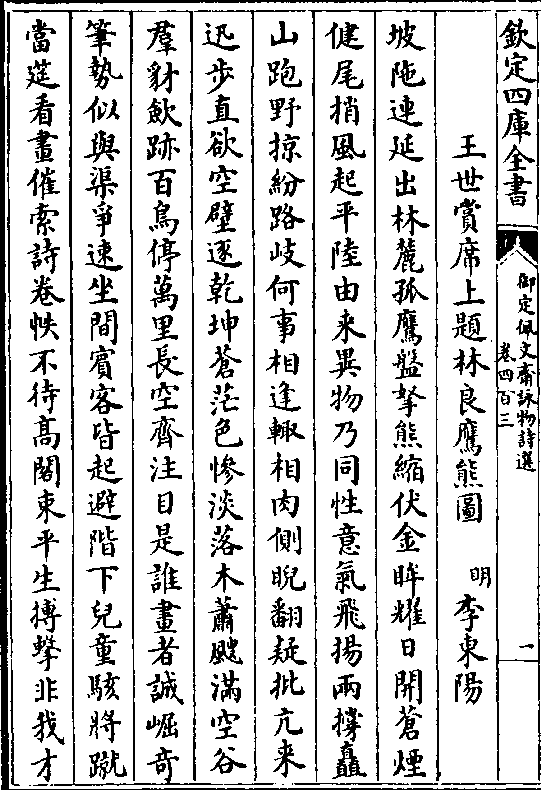 欽定四庫全書
御定佩文齋詠物詩選
卷四百三
一
王世賞席上題林良鷹熊圖
明
李東陽
坡陁連延出林麓孤鷹盤拏熊縮伏金眸耀日開蒼煙
健尾捎風起平陸由来異物乃同性意氣飛揚兩撐矗
山跑野掠紛路岐何事相逢輙相肉側睨翻疑批亢来
迅步直欲空壁逐乾坤蒼茫色慘淡落木蕭颼滿空谷
羣豺歛跡百鳥停萬里長空齊注目是誰畫者誠崛奇
筆勢似與渠爭速坐間賓客皆起避階下兒童駭將蹴
當筵看畫催索詩卷帙不待髙閣束平生搏擊非我才